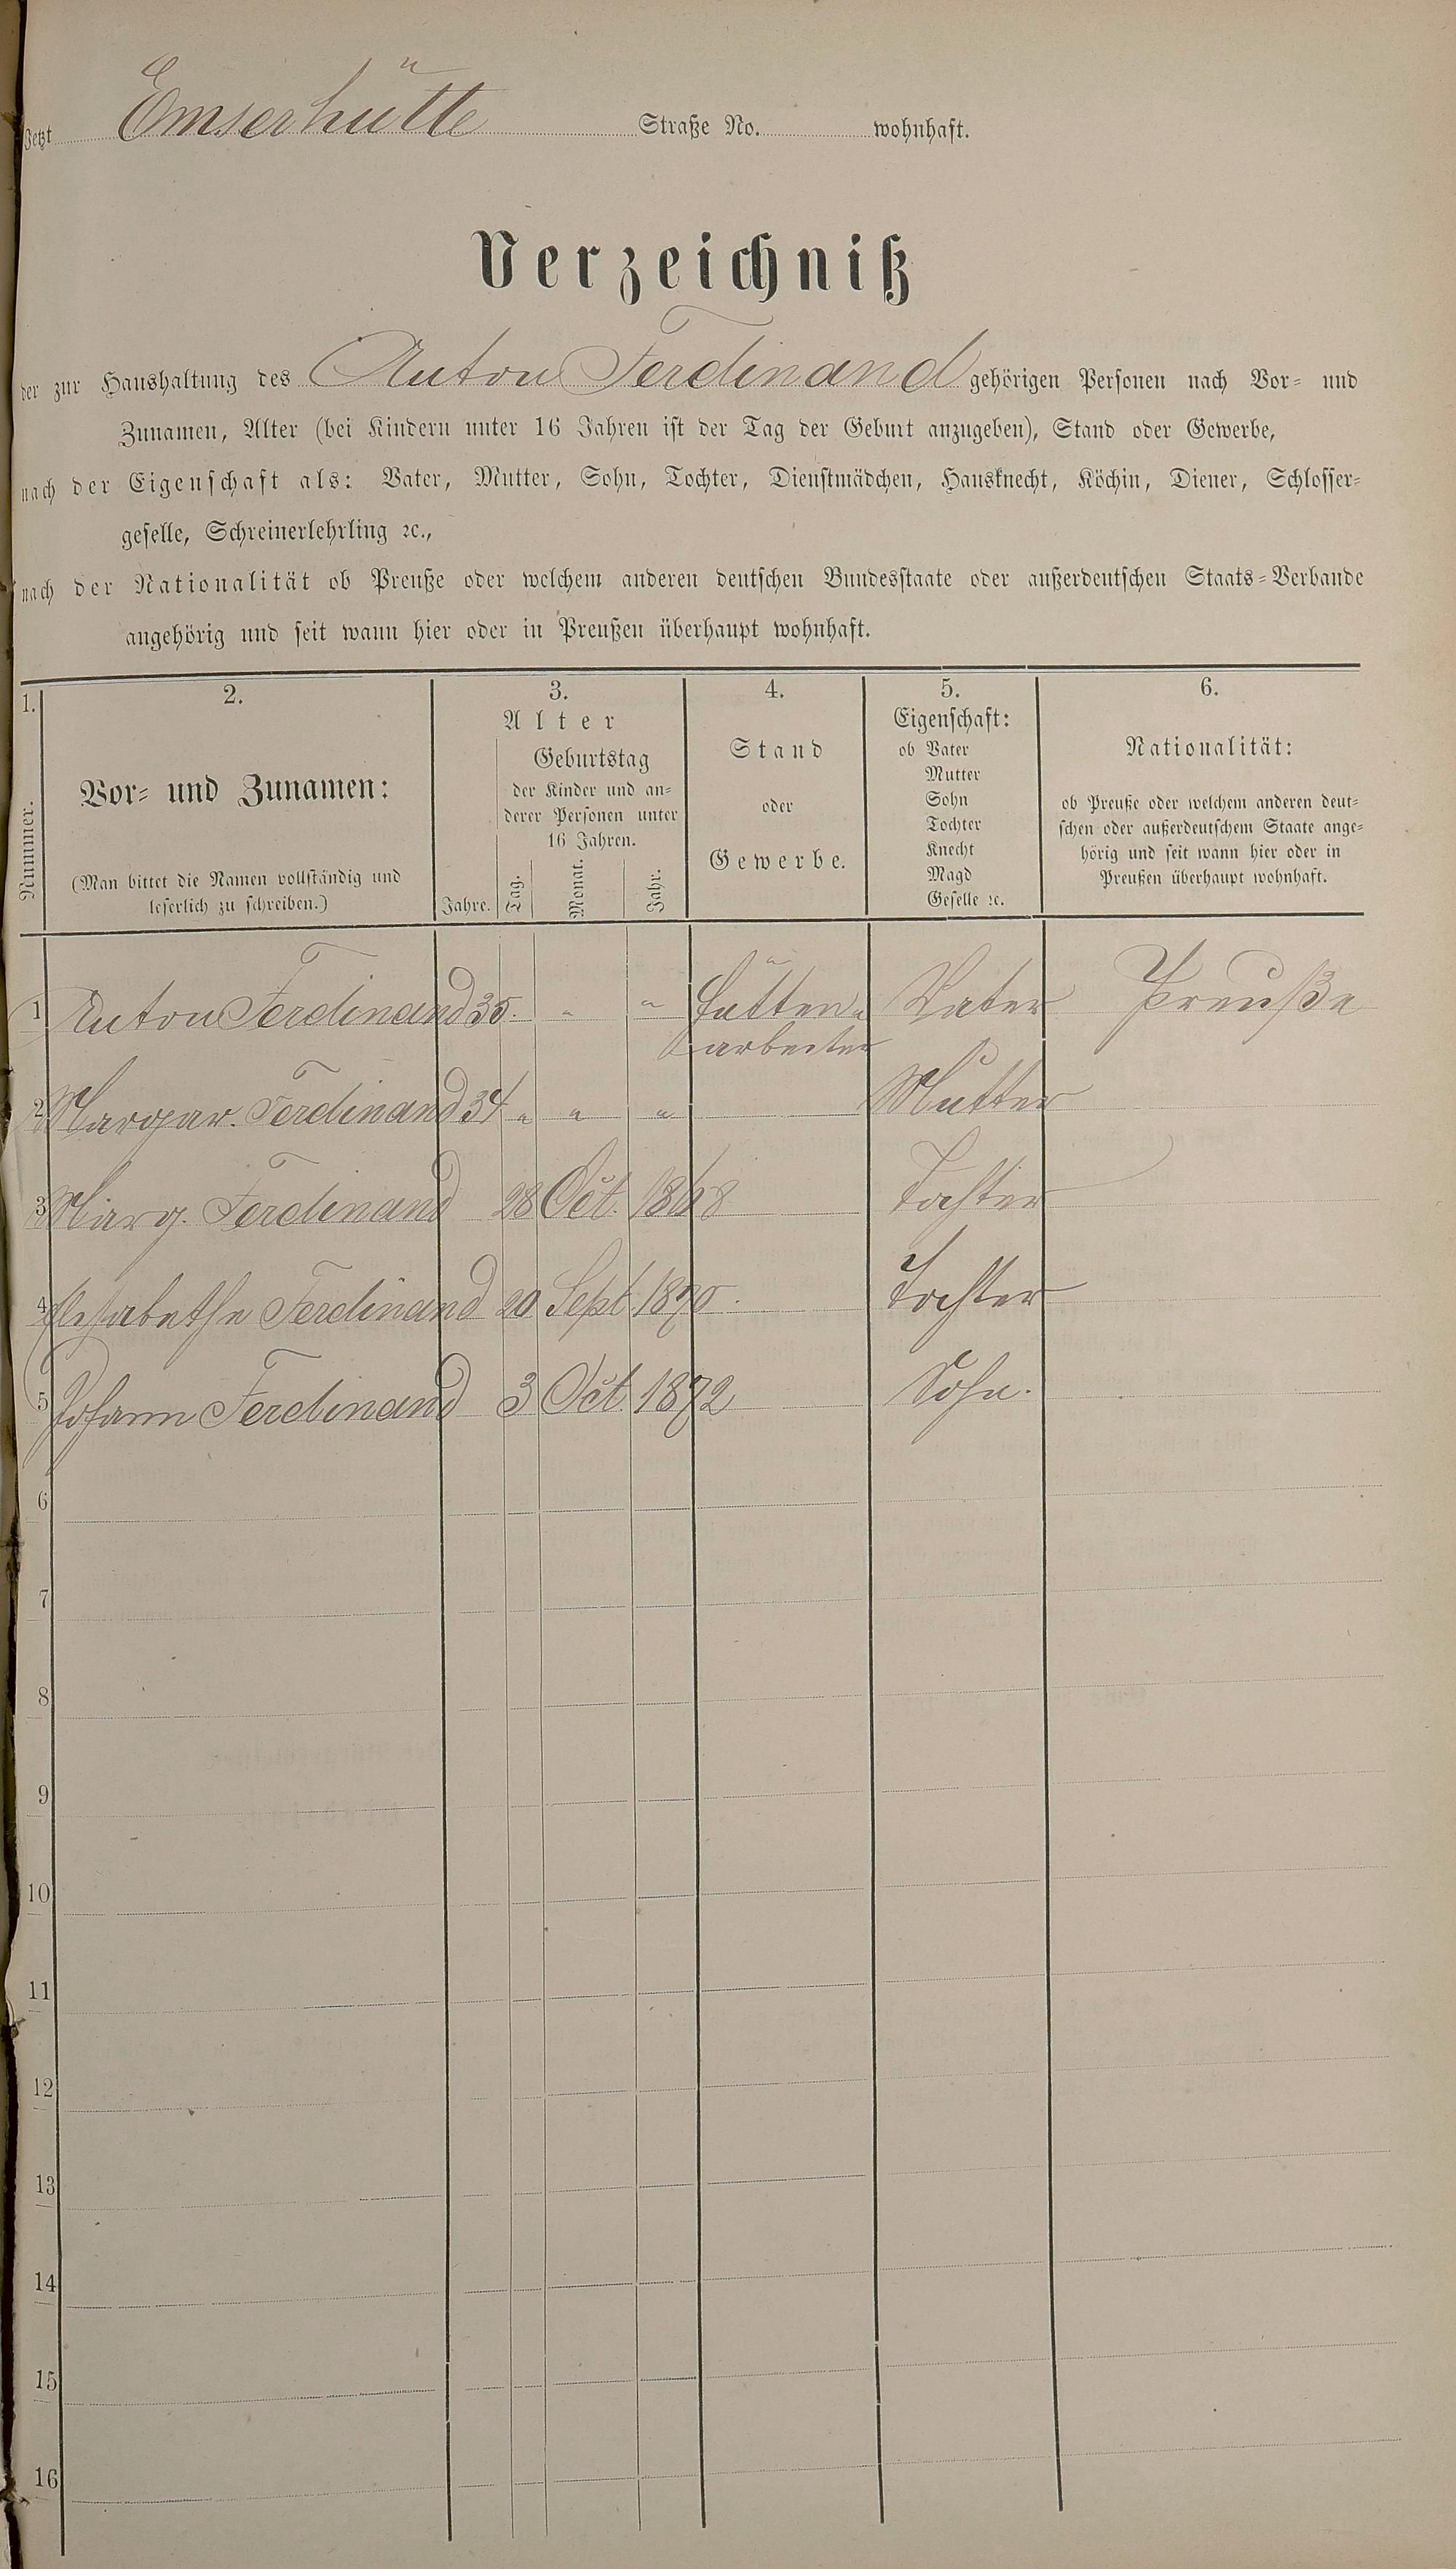 Jetzt Emserhütte Straße No. wohnhaft.
Verzeichniß
der zur Haushaltung des Anton Ferdinand gehörigen Personen nach Vor- und
Zunamen, Alter (bei Kindern unter 16 Jahren ist der Tag der Geburt anzugeben), Stand oder Gewerbe,
nach der Eigenschaft als: Vater, Mutter, Sohn, Tochter, Dienstmädchen, Hausknecht, Köchin, Diener, Schlosser-
geselle, Schreinerlehrling ꝛc.,
nach der Nationalität ob Preuße oder welchem anderen deutschen Bundesstaate oder außerdeutschen Staats-Verbande
angehörig und seit wann hier oder in Preußen überhaupt wohnhaft.
1.
Nummer.
2.
Vor- und Zunamen:
(Man bittet die Namen vollständig und
leserlich zu schreiben.)
3.
Alter
Geburtstag
der Kinder und an-
derer Personen unter
16 Jahren.
Jahre. Tag. Monat. Jahr.
4.
Stand
oder
Gewerbe.
5.
Eigenschaft:
ob Vater
Mutter
Sohn
Tochter
Knecht
Magd
Geselle ꝛc.
6.
Nationalität:
ob Preuße oder welchem anderen deut-
schen oder außerdeutschem Staate ange-
hörig und seit wann hier oder in
Preußen überhaupt wohnhaft.
1 Anton Ferdinand 35. " " Hütten- Vater Preuße
arbeiter
2 Margar. Ferdinand 34 " " " Mutter
3 Marg. Ferdinand 28 Oct. 1868 Tochter
4 Elisabethe Ferdinand 20 Sept 1870. Tochter
5 Johann Ferdinand 3 Oct. 1872 Sohn.
6
7
8
9
10
11
12
13
14
15
16